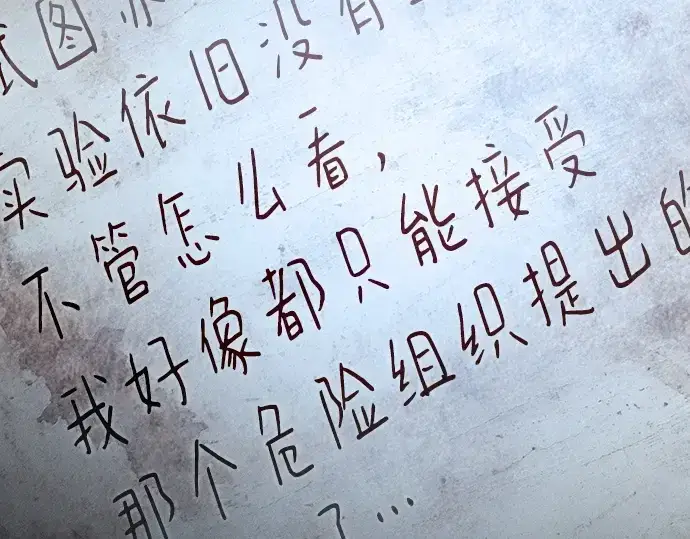 试图亦没有
实验依旧没有
不管怎么看，
我好像都只能接受
那个危险组织提出的
了…